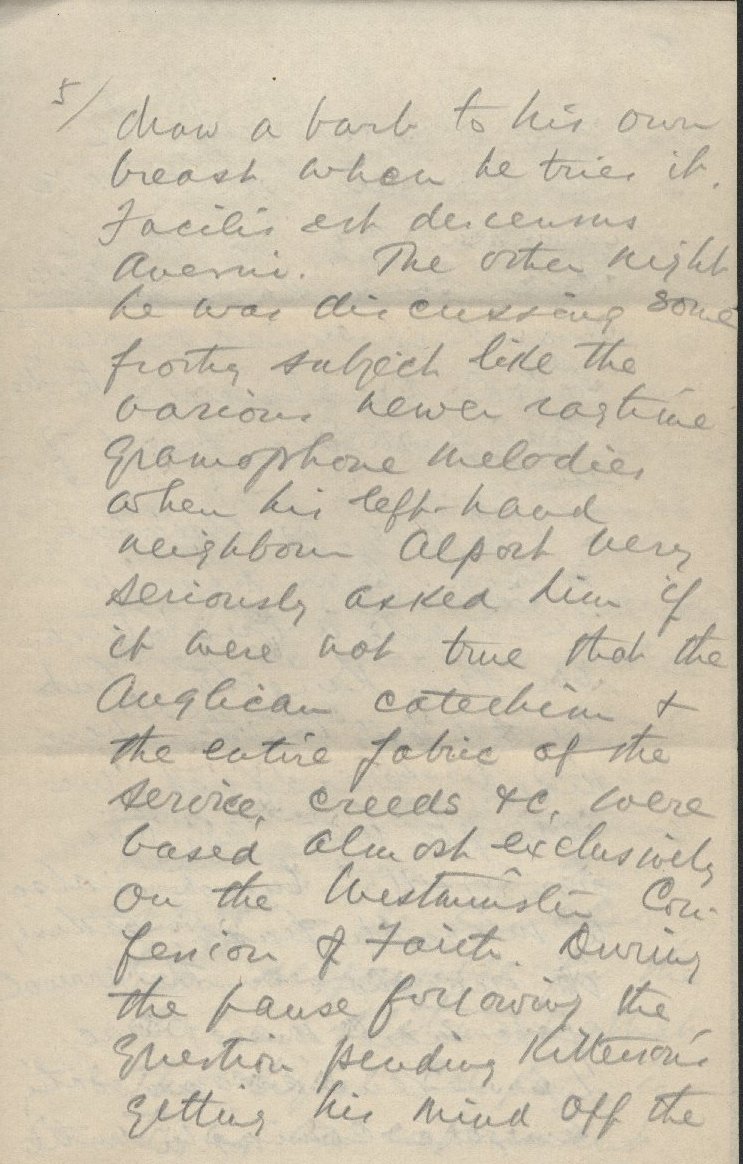 5/
draw a barb to his own
breast when he tries it.
Facilis est descensus
Averni. The other night
he was discussing some
frothy subject like the
various newer ragtime
gramophone melodies
when his left-hand
neighbour Alport very
seriously asked him if
it were not true that the
Anglican catechism &
the entire fabric of the
service, creeds &c, were
based almost exclusively
on the Westminster Con-
fession of Faith. During
the pause following the
question pending Kitterson's
getting his mind off the